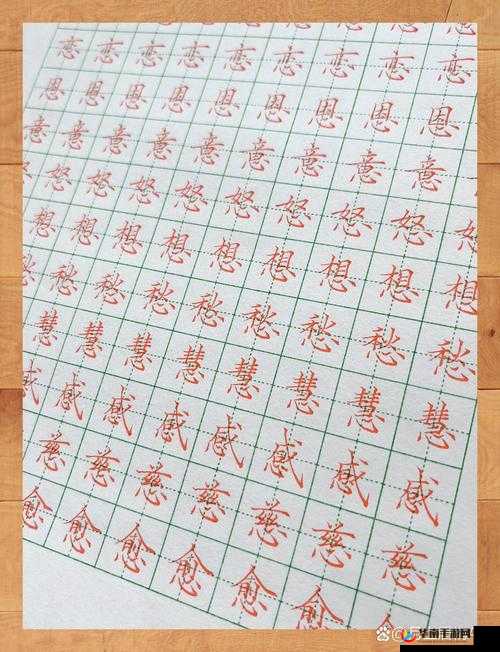 恋恋恋恋恋恋恋恋恋
恩恩恩恩恩恩恩恩恩
意意意意意意意意意
怒怒怒怒怒怒怒怒
想想想想想想想想想
愁愁愁愁愁愁愁愁
慧慧慧慧慧慧慧慧
感感感感感感感感
慈慈慈慈慈慈慈
愈愈愈愈愈愈
华南手游网